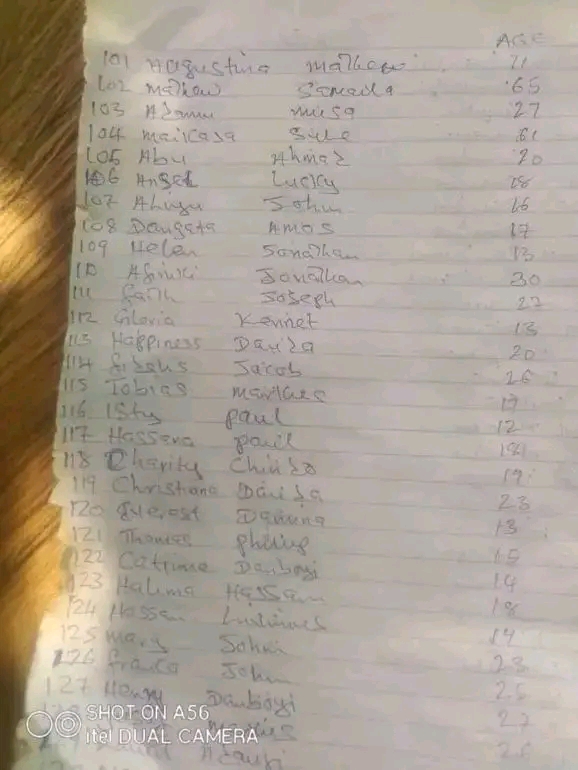 AGE
101 Augustina Mathew 71
102 Mathew Samaila 65
103 Adamu musa 27
104 maikasa Sule 61
105 Abu Ahmad 20
106 Angel Lucky 18
107 Ahuyu John 16
108 Daugata Amos 17
109 Helen Jonathan 13
110 Jonathan 30
111 Faith Joseph 27
112 Gloria Kennet 13
113 Happiness Dauda 20
114 Jacob 26
115 Tobias 19
116 paul 12
117 Hassana paul 18
118 Charity Chindo 19
119 Christiana Dauda 23
120 Everest Dauuna 13
121 Thomas philip 15
122 Catrine Danboyi 19
123 Halima Hassan 18
124 Hassan 19
125 mary John 23
126 franco John 25
127 Henry Danboyi 27
26
SHOT ON A56
itel DUAL CAMERA